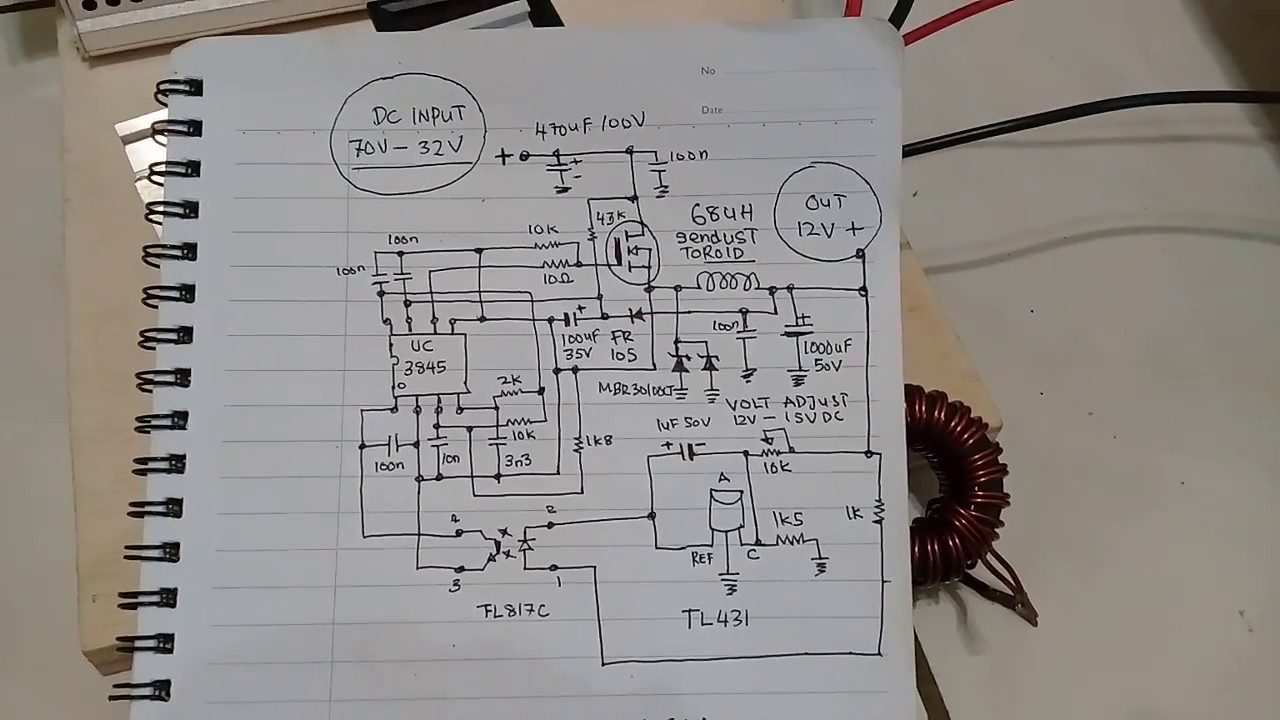 No
Date
DC INPUT
70V - 32V
470uF/100V
+
+
-
100n
OUT
12V +
68uH
SENDUST
TOROID
43K
10K
10Ω
100n
100n
UC
3845
+
100uF
35V
FR
105
100n
+
1000uF
50V
MBR30100CT
VOLT ADJUST
12V - 15VDC
2K
10K
1K8
100n
10n
3n3
1uF 50V
+
-
10K
A
1K5
1K
REF
C
4
2
3
1
FL817C
TL431